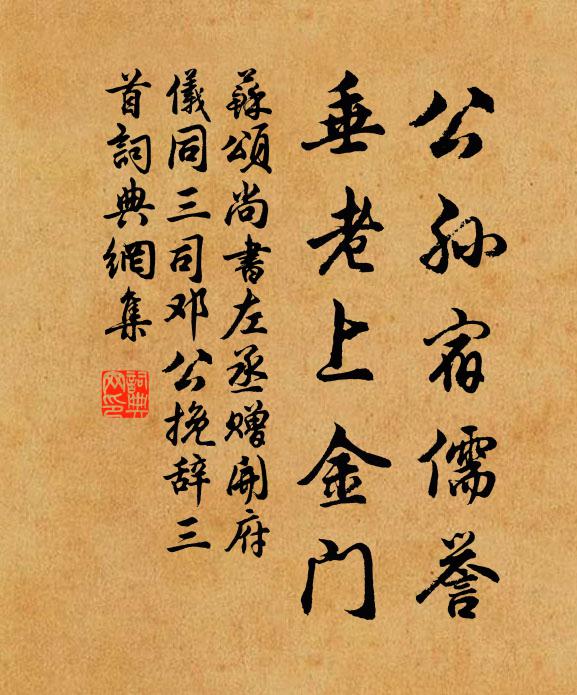 公孙宿儒誉
垂老上金门
蘇頌尚書左丞赠開府
儀同三司邓公挽辞三
首詞典網集
詞典网印